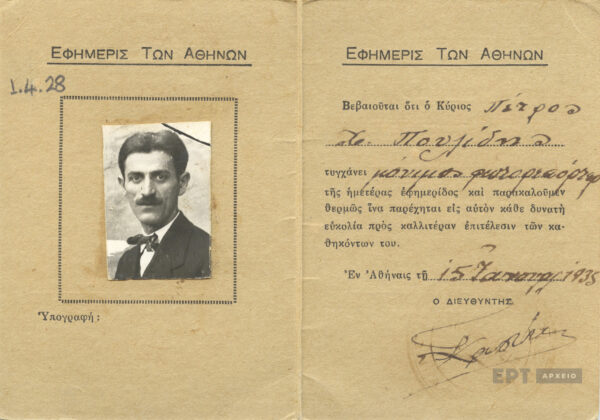 ΕΦΗΜΕΡΙΣ ΤΩΝ ΑΘΗΝΩΝ
1.4.28
Ὑπογραφή :
ΕΦΗΜΕΡΙΣ ΤΩΝ ΑΘΗΝΩΝ
Βεβαιοῦται ὅτι ὁ Κύριος Πέτρος
Πουλίδης
τυγχάνει μόνιμος φωτορεπόρτερ
τῆς ἡμετέρας ἐφημερίδος καὶ παρακαλοῦμεν
θερμῶς ἵνα παρέχηται εἰς αὐτὸν κάθε δυνατὴ
εὐκολία πρὸς καλλιτέραν ἐπιτέλεσιν τῶν κα-
θηκόντων του.
Ἐν Ἀθήναις τῇ 15 Ἰανουαρ 1935
Ο ΔΙΕΥΘΥΝΤΗΣ
ΕΡΤ ΑΡΧΕΙΟ